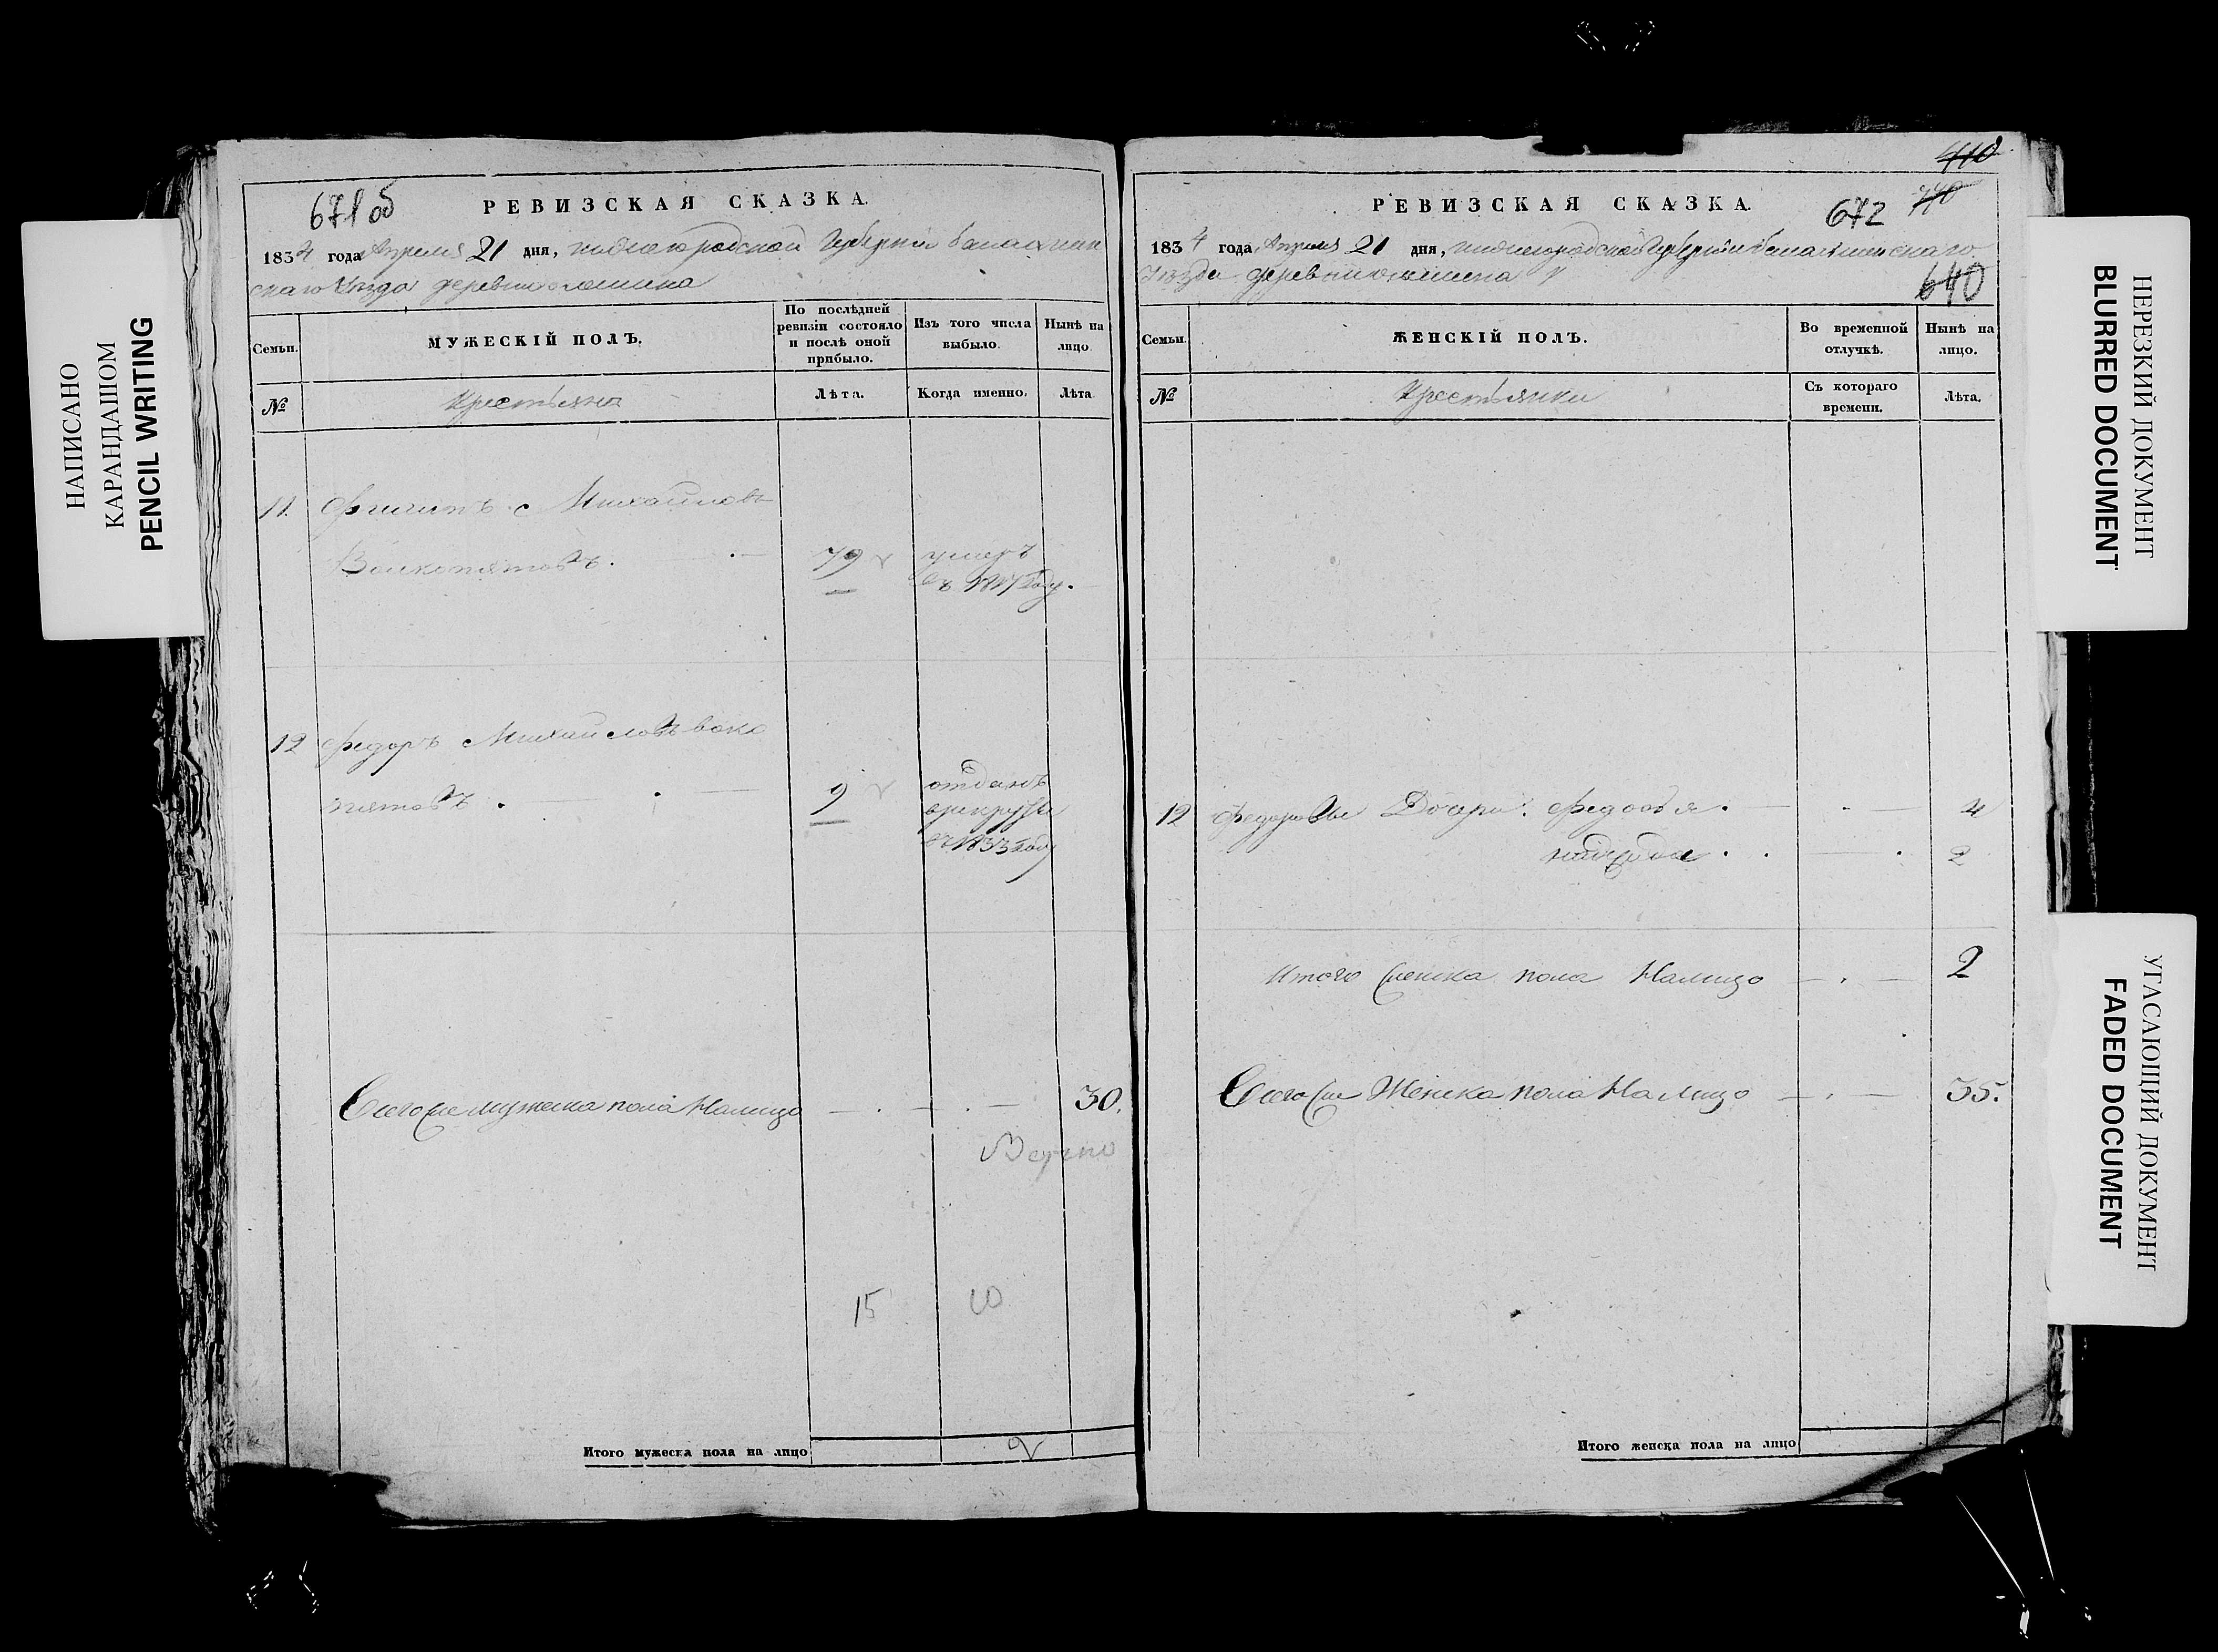 НАПИСАНО
КАРАНДАШОМ
PENCIL WRITING
671 об
РЕВИЗСКАЯ СКАЗКА.
1834 года Апреля 21 дня, нижегородской Губерніи балахнин
скаго Уезда деревни
Семьи.
МУЖЕСКІЙ ПОЛЪ.
По послѣдней ревизіи состояло и послѣ оной прибыло.
Изъ того числа выбыло.
Нынѣ на лицо.
№
Крестьяна
Лѣта.
Когда именно.
Лѣта
11. Филипъ Михайловъ
79 умеръ
въ году.
12 Федоръ Михайловъ воко
пятовъ 9 отданъ
врекруты
в 1833 году
Всего мужеска пола Налицо 30.
Верно
15
Итого мужеска пола на лицо
2
410
РЕВИЗСКАЯ СКАЗКА.
672
770
1834 года Апреля 21 дня, нижегородской Губерніи балахнинскаго
Уезда деревни
640
Семьи.
ЖЕНСКІЙ ПОЛЪ.
Во временной отлучкѣ.
Нынѣ на лицо.
№
Крестьянки
Съ котораго времени.
Лѣта.
12 Федоровы Дочри: Федосья 4
2
Итого Женска пола Налицо 2
Всего Женска пола На лицо 35.
Итого женска пола на лицо
НЕРЕЗКИЙ ДОКУМЕНТ
BLURRED DOCUMENT
УГАСАЮЩИЙ ДОКУМЕНТ
FADED DOCUMENT